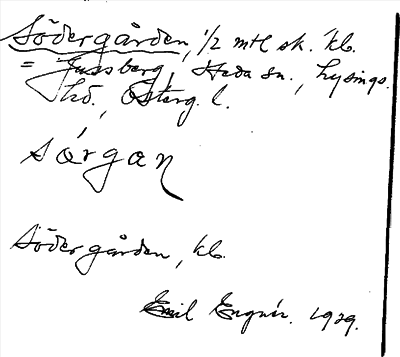 Södergården, 1/2 mtl sk. kb.
= Jussberg, Heda sn., Lysings
hd., Österg. l.
sørgaɳ
Södergården, kb.
Emil Engnér. 1929.